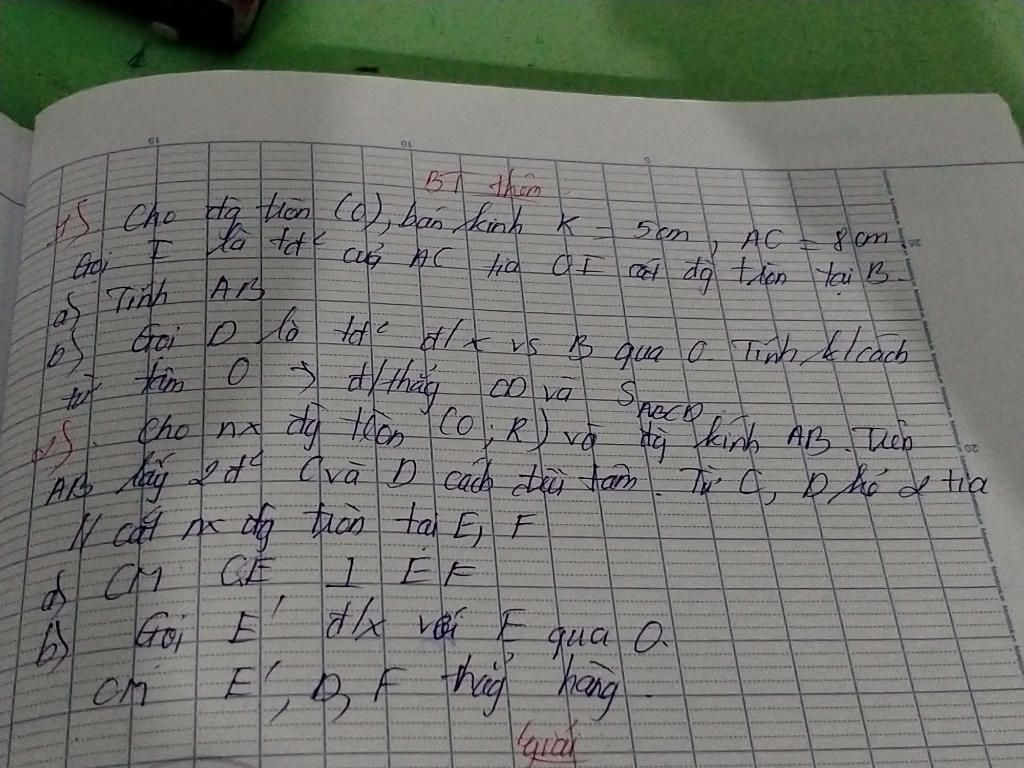 BT thêm
Cho đg tròn (O), bán kính K = 5cm, AC = 8cm
Gọi I là tđ' của AC tia OI cắt đg tròn tại B.
a) Tính AB
b) Gọi D là tđ' đ/x vs B qua O Tính k/cách
từ tâm O → đ/thẳng CD và S ABCD
Cho nx đg tròn (O; R) và đg kính AB. Trên
AB lấy 2 đ' C và D cách đều tâm. Từ C, D kẻ 2 tia
// cắt nx đg tròn tại E, F
a) CM CE ⊥ EF
b) Gọi E' đ/x với E qua O.
CM E', D, F thẳng hàng.
Giải